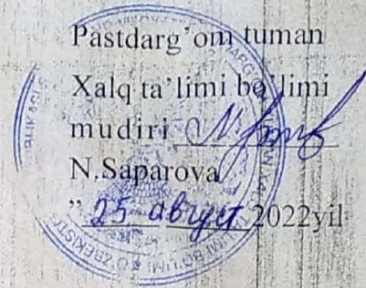 Pastdarg'om tuman
Xalq ta'limi bo'limi
mudiri
N.Saparova
" 25 август 2022yil